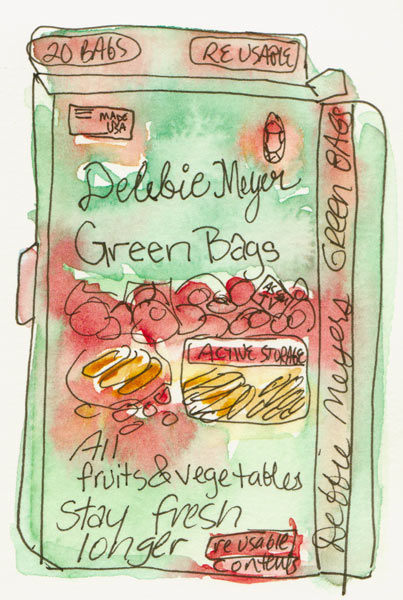 20 BAGS
REUSABLE
MADE
USA
Debbie Meyer
Green Bags
ACTIVE STORAGE
All
fruits & vegetables
Stay fresh
longer
reusable
contents
Debbie Meyers GREEN BAGS